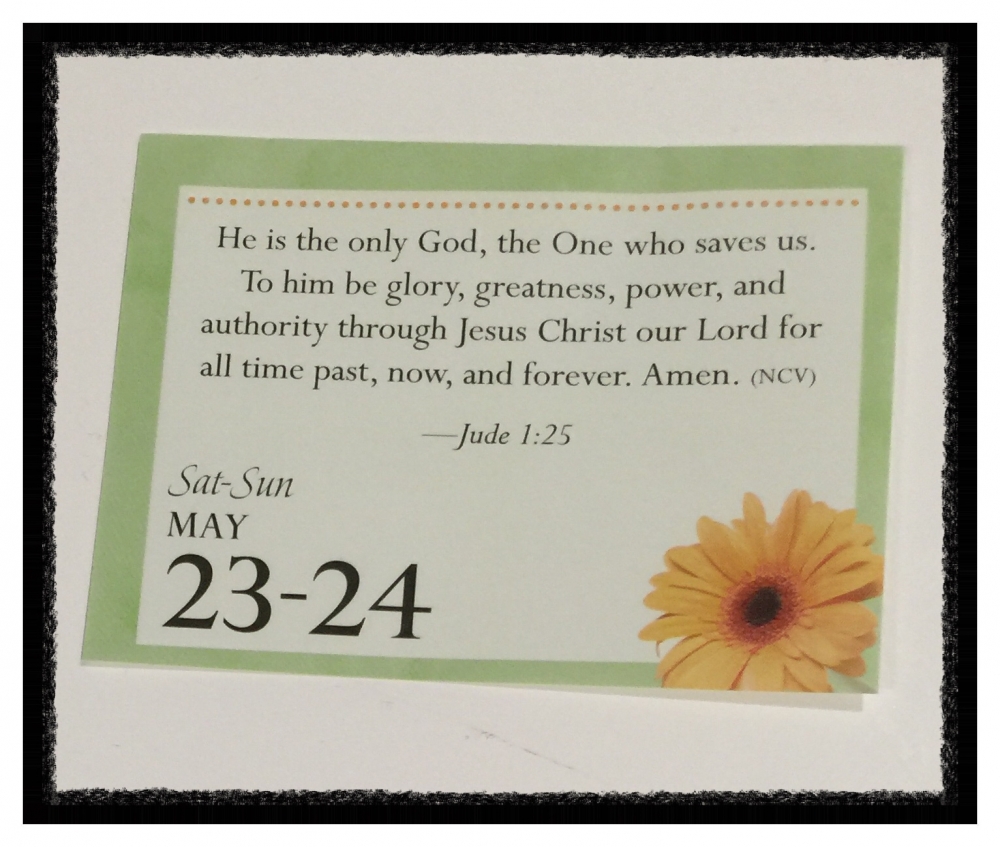 He is the only God, the One who saves us.
To him be glory, greatness, power, and
authority through Jesus Christ our Lord for
all time past, now, and forever. Amen. (NCV)
—Jude 1:25
Sat-Sun
MAY
23-24